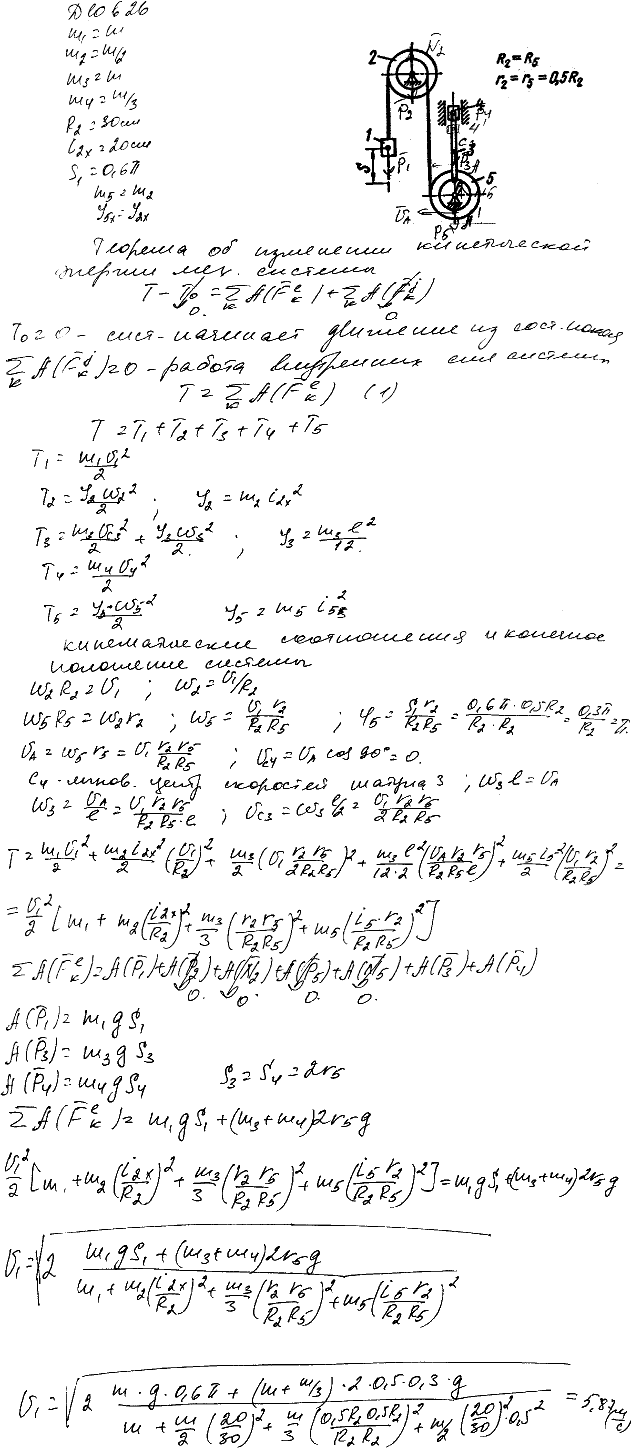 Д10626
m₁ = m
m₂ = m/2
m₃ = m
m₄ = m/3
R₂ = 30 см
i₂ₓ = 20 см
S₁ = 0,6π
m₅ = m₂
i₅ₓ = i₂ₓ
2 N̄₂
P̄₂
R₂ = R₅
r₂ = r₅ = 0,5R₂
1
P̄₁
S
4
5
Ū_A
P̄₅
Теорема об изменении кинетической
энергии мех. системы
T − T₀ = Σ A(F̄ₖᵉ) + Σ A(F̄ₖⁱ)
0. 0
T₀ = 0 - сист. начинает движение из сост. покоя
Σ A(F̄ₖⁱ) = 0 - работа внутренних сил системы
T = Σ A(F̄ₖᵉ) (1)
T = T₁ + T₂ + T₃ + T₄ + T₅
T₁ = m₁υ₁²/2
T₂ = J₂ω₂²/2 ; J₂ = m₂ i₂ₓ²
T₃ = m₃υ_C3²/2 + J₃ω₃²/2 ; J₃ = m₃l²/12
T₄ = m₄υ₄²/2
T₅ = J₅ω₅²/2 J₅ = m₅ i₅²
кинематические соотношения и конечное
положение системы
ω₂R₂ = υ₁ ; ω₂ = υ₁/R₂
ω₅R₅ = ω₂r₂ ; ω₅ = υ₁r₂/R₂R₅ ; φ₅ = S₁r₂/R₂R₅ = 0,6π·0,5R₂/R₂·R₂ = 0,3π/R₂ = π.
υ_A = ω₅r₅ = υ₁ r₂r₅/R₂R₅ ; υ_C4 = υ_A cos 90° = 0.
C₄ - мгнов. центр скоростей шатуна 3 ; ω₃l = υ_A
ω₃ = υ_A/l = υ₁r₂r₅/R₂R₅·l ; υ_C3 = ω₃ l/2 = υ₁r₂r₅/2R₂R₅
T = m₁υ₁²/2 + m₂i₂ₓ²/2 (υ₁/R₂)² + m₃/2 (υ₁ r₂r₅/2R₂R₅)² + m₃l²/12·2 (υ_A r₂r₅/R₂R₅l)² + m₅i₅²/2 (υ₁r₂/R₂R₅)² =
= υ₁²/2 [m₁ + m₂(i₂ₓ/R₂)² + m₃/3 (r₂r₅/R₂R₅)² + m₅(i₅·r₂/R₂R₅)²]
Σ A(F̄ₖᵉ) = A(P̄₁) + A(P̄₂) + A(N̄₂) + A(P̄₅) + A(N̄₅) + A(P̄₃) + A(P̄₄)
0. 0. 0. 0.
A(P̄₁) = m₁gS₁
A(P̄₃) = m₃gS₃
A(P̄₄) = m₄gS₄ S₃ = S₄ = 2r₅
Σ A(F̄ₖᵉ) = m₁gS₁ + (m₃+m₄)2r₅g
υ₁²/2 [m₁ + m₂(i₂ₓ/R₂)² + m₃/3 (r₂r₅/R₂R₅)² + m₅(i₅r₂/R₂R₅)²] = m₁gS₁ + (m₃+m₄)2r₅g
υ₁ = √(2 (m₁gS₁ + (m₃+m₄)2r₅g)/(m₁ + m₂(i₂ₓ/R₂)² + m₃/3 (r₂r₅/R₂R₅)² + m₅(i₅r₂/R₂R₅)²))
υ₁ = √(2 (m·g·0,6π + (m+m/3)·2·0,5·0,3·g)/(m + m/2 (20/30)² + m/3 (0,5R₂0,5R₂/R₂R₂)² + m/2 (20/30)²·0,5²)) = 5,87 (м/с)